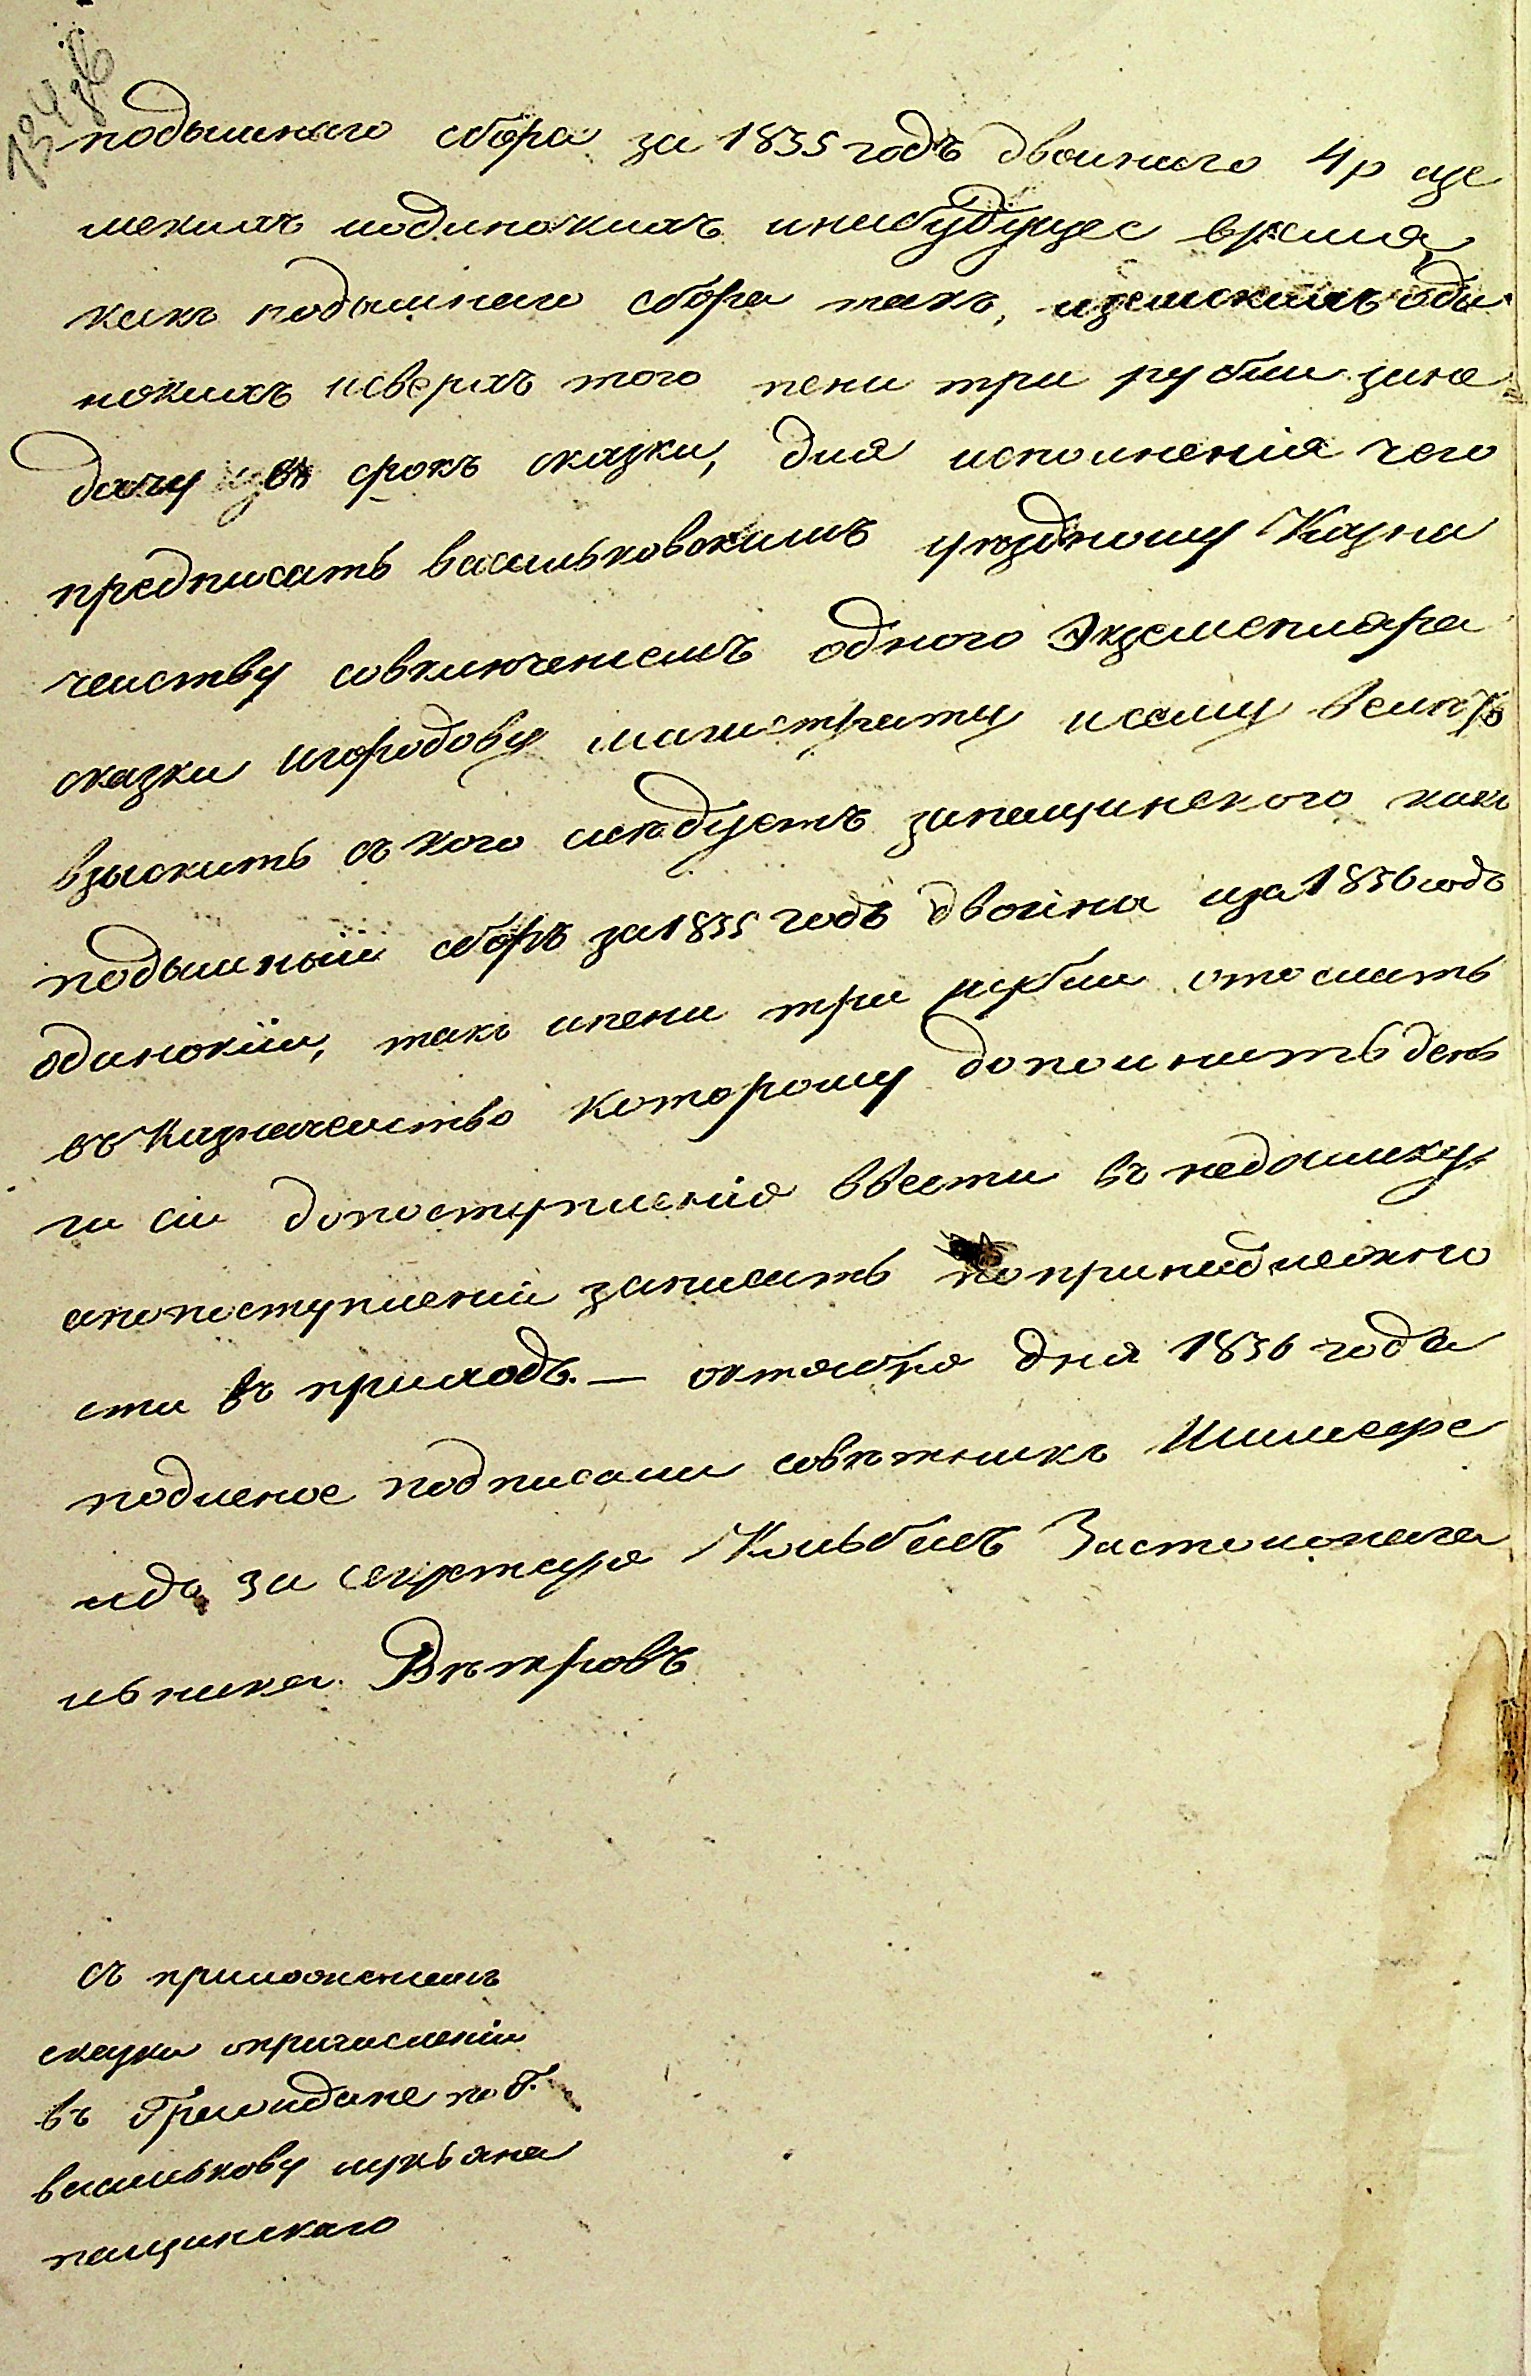 подымнаго сбора за 1835 годъ двойнаго 4р изе
мскихъ иодинокихъ инабудущее время
какъ подымнаго сбора такъ, иземскихъ оди
нокихъ исверхъ того пени три рубли зане
дачу въ срокъ сказки, для исполненія чего
предписать васильковскимъ уѣздному Казна
чейству совключеніемъ одного Экземпляра
сказки игородову магистрату исему велѣть
взыскать съ кого слѣдуетъ запащинского какъ
подымный сборъ за 1835 годъ двойна иза 1836 годъ
одинокій, такъ ипени три рубли отослать
въ Казначейство которому дополнить день
ги сіи допоступленія ввести въ недоимку,
апопоступленіи записать попринадлежно
сти въ приходъ. — октября дня 1836 года
подленое подписали совѣтникъ
идъ за секретаря Кольбелъ Застолонача
льника Вѣтровъ
съ приложеніемъ
сказки опричисленіи
въ Граждане по Г.
василькову лукьяна
пащинскаго